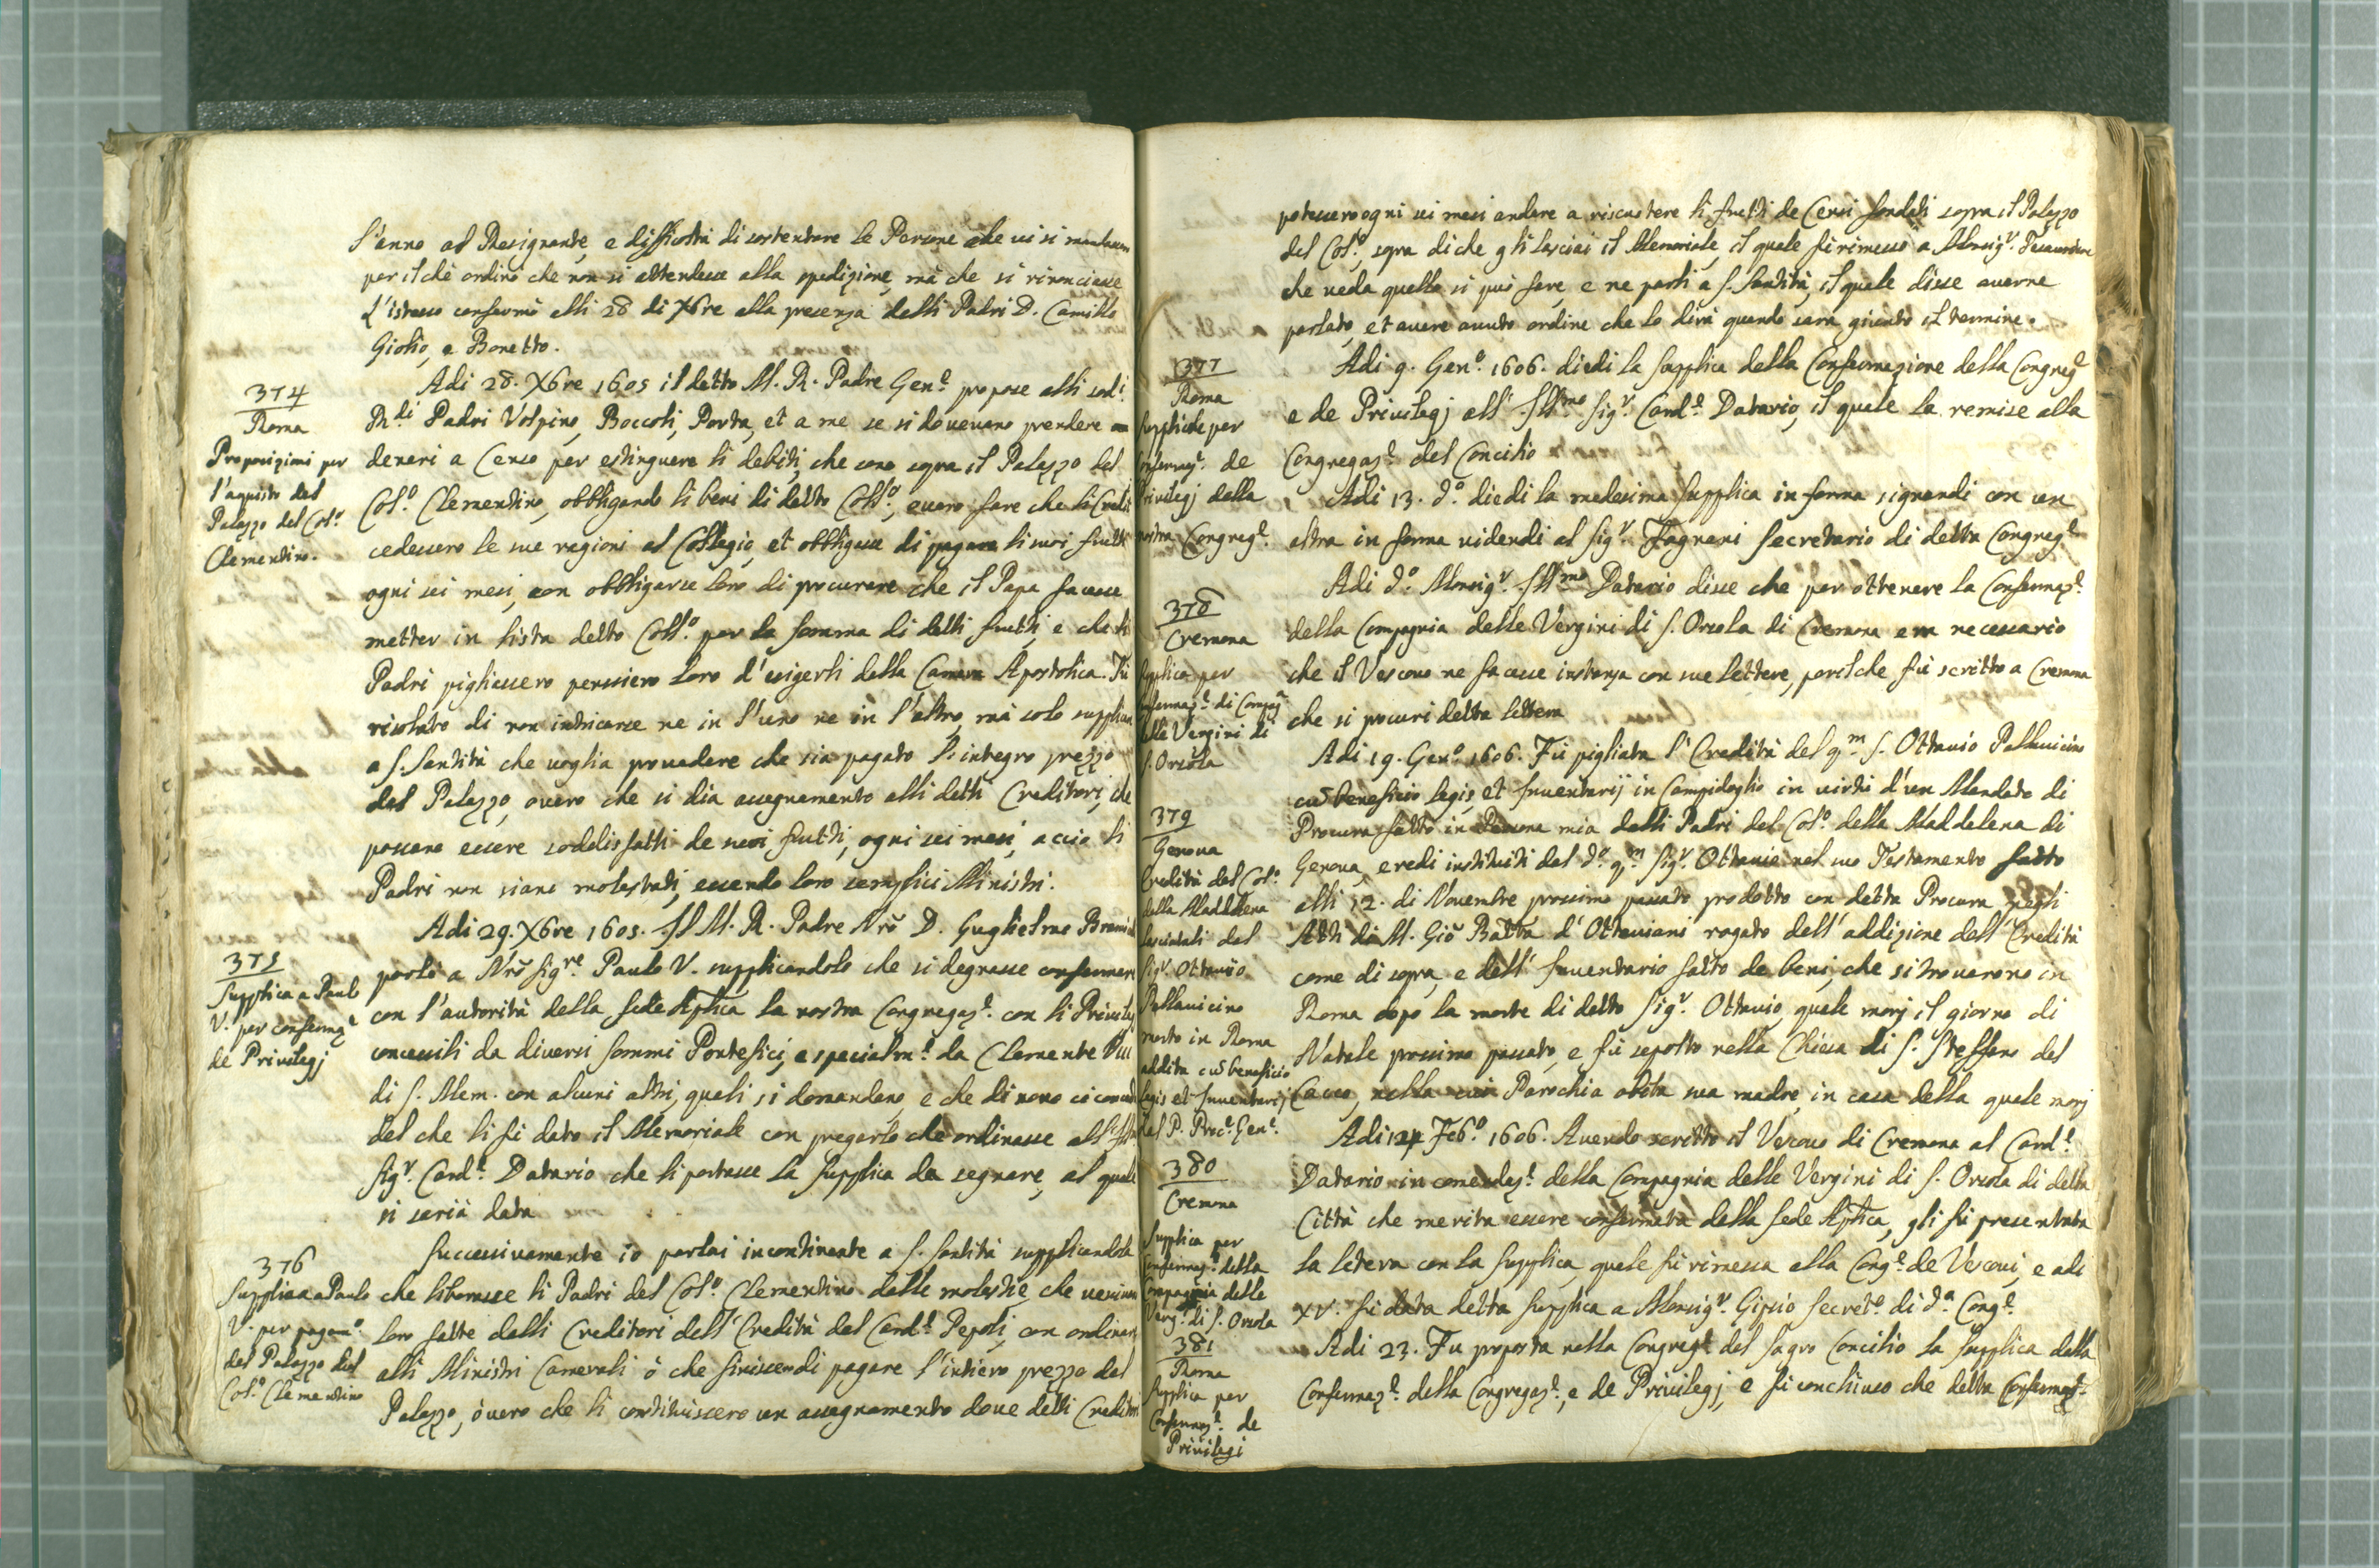 l'anno al Resignante, e difficoltà di sostentare le Persone che ui si
per il chè ordinò che non si attendesse alla spedizione, mà che si rinonciasse
L'istesso confermò alli 28 di Xbre alla presenza delli Padri D. Camillo
Giolio, e Bonetto.
374
Roma
Proposizioni per
l'aquisto del
Palazzo del Col.º
Clementino.
Adi 28. Xbre 1605 il detto M. R. Padre Gen.e propose alli sod.i
R.di Padri Volpino, Boccoli, Porta, et a me se si doueuano prendere
denari a Censo per estinguere li debiti, che sono sopra il Palazzo del
Col.º Clementino, obbligando li beni di detto Coll.º, ouero fare che li Credi
cedessero le sue ragioni al Collegio, et obbligasse di pagare li suoi frutti
ogni sei mesi, con obbligarse loro di procurare che il Papa facesse
metter in lista detto Coll.º per la somma di detti frutti, e che li
Padri pigliassero pensiero loro d'esigerli dalla Camera Apostolica. Fù
risoluto di non intricarse ne in l'uno ne in l'altro, mà solo supplicar
a S. Santità che uoglia prouedere che sia pagato l'integro prezzo
del Palazzo, ouero che si dia assegnamento alli detti Creditori, che
possano essere soddisfatti de suoi frutti, ogni sei mesi, acciò li
Padri non siano molestati, essendo loro semplici Ministri.
375
Supplica a Paulo
V. per confermaz.e
de Privilegj
Adi 29. Xbre 1605. Il M. R. Padre Nrõ D. Guglielmo
parlò a Nrõ Sig.re Paulo V. supplicandolo che si degnasse confermare
con l'autorità della Sede Aplica la nostra Congregaz.e con li Privileg
concessili da diuersi Sommi Pontefici, e specialm.e da Clemente VIII
di S. Mem. con alcuni altri, quali si domandano, e che di nouo
del che li fù dato il Memoriale con pregarlo che ordinasse all'
Sig.r Card.e Datario che li portasse la Supplica da segnare, al quale
si sarià data
376
Supplica a Paulo
V. per pagam.º
del Palazzo del
Col.º Clementino
Successiuamente io parlai incontinente a S. Santità supplicandola
che liberasse li Padri del Col.º Clementino dalle molestie, che ueniuan
loro fatte dalli Creditori dell'Eredità del Card.e Pepoli, con ordinare
alli Ministri Camerali ò che finiscano di pagare l'intiero prezzo del
Palazzo, óuero che li constituissero un assegnamento doue detti Creditori
potessero ogni sei mesi andare a riscuotere li frutti de Censi fondati sopra il Palazzo
del Col.º, sopra di che gli lasciai il Memoriale, il quale fù rimesso a Monsig.r Tesauriere
che ueda quello si può fare, e ne parli a S. Santità, il quale disse auerne
parlato, et auere auuto ordine che lo dirà quando sarà giunto il termine.
377
Roma
Suppliche per
confermaz.e de
Privilegj della
nostra Congreg.e
Adi 9. Gen.º 1606. diedi la Supplica della Confermazione della Congreg.e
e de Privilegj all'Ill.mo Sig.r Card.e Datario, il quale la remise alla
Congregaz.e del Concilio
Adi 13. d.º diedi la medesima Supplica in forma signandi con un
altra in forma uidendi al Sig.r Fagnani Secretario di detta Congreg.e
378
Cremona
Supplica per
confermaz.e di Compag
delle Vergini di
S. Orsola
Adi d.º Monsig.r Ill.mo Datario disse che per ottenere la Confermaz.e
della Compagnia delle Vergini di S. Orsola di Cremona era necessario
che il Vescouo ne facesse instanza con sue lettere, per il che fù scritto a Cremona
che si procuri detta lettera
379
Genoua
Eredità del Col.º
della Maddalena
lasciatali dal
Sig.r Ottauio
Pallauicino
morto in Roma
addita cũ beneficio
legis et Inuentarij
dal P. Proc.e Gen.e
Adi 19. Gen.º 1606. Fù pigliata l'Eredità del q.m S. Ottauio Pallauicino
cũ beneficio legis, et Inuentarij in Campidoglio in uirtù d'un Mandato di
Procura fatto in Persona mia dalli Padri del Col.º della Maddalena di
Genoua, eredi instituiti dal d.º q.m Sig.r Ottauio nel suo Testamento fatto
alli 12. di Nouembre prossimo passato prodotto con detta Procura negli
Atti di M. Giõ Batta d'Ottauiani rogato dell'addizione dell'Eredità
come di sopra, e dell'Inuentario fatto de beni, che si trouarono in
Roma dopo la morte di detto Sig.r Ottauio, quale morj il giorno di
Natale prossimo passato, e fù sepolto nella Chiesa di S. Steffano del
Cacco, nella cui Parochia abita sua madre, in casa della quale morj
380
Cremona
Supplica per
confermaz.e della
Compagnia delle
Verg.i di S. Orsola
Adi 14 Feb.º 1606. Auendo scritto il Vescouo di Cremona al Card.e
Datario in comendaz.e della Compagnia delle Vergini di S. Orsola di detta
Città che merita essere confermata dalla Sede Aplica, gli fù presentata
la lettera con la Supplica, quale fù rimessa alla Cong.e de Vescoui, e adi
XV. fù data detta Supplica a Monsig.r Gipsio Secret.º di d.a Cong.e
381
Roma
Supplica per
Confermaz.e de
Privilegi
Adi 23. Fu proposta nella Congreg.e del Sagro Concilio la Supplica della
Confermaz.e della Congregaz.e, e de Privilegj, e fù conchiuso che detta Confermaz.e